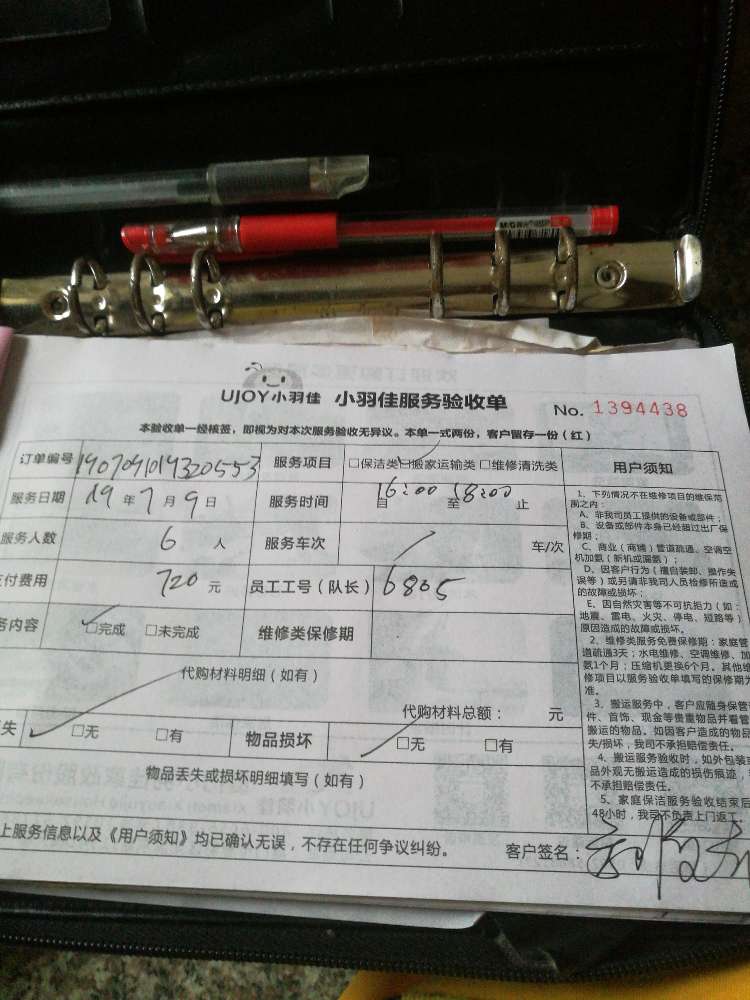 M&G
UJOY小羽佳 小羽佳服务验收单 No. 1394438
本验收单一经核签，即视为对本次服务验收无异议。本单一式两份，客户留存一份（红）
订单编号 190709101932055 3 服务项目 □保洁类□搬家运输类□维修清洗类
服务日期 19年7月9日 服务时间 16:00自至18:00止
服务人数 6人 服务车次 车/次
应付费用 720元 员工工号（队长） 6805
务内容 □完成 □未完成 维修类保修期
代购材料明细（如有）
代购材料总额： 元
失 □无 □有 物品损坏 □无 □有
物品丢失或损坏明细填写（如有）
上服务信息以及《用户须知》均已确认无误，不存在任何争议纠纷。 客户签名：
用户须知
1、下列情况不在维修项目的维保范
围之内：
A、非我司员工提供的设备或部件；
B、设备或部件本身已经超过出厂保
修期；
C、商业（商铺）管道疏通、空调空
机加氨（新机或漏氨）；
D、因客户行为（擅自装卸、操作失
误等）或另请非我司人员检修所造成
的故障或损坏；
E、因自然灾害等不可抗拒力（如：
地震、雷电、火灾、停电、短路等）
原因造成的故障或损坏。
2、维修类服务免费保修期：家庭管
道疏通3天；水电维修、空调维修、加
氨1个月；压缩机更换6个月。其他维
修项目以服务验收单填写的保修期为
准。
3、搬运服务中，客户应随身保管
件、首饰、现金等贵重物品并看管
搬运的物品。如因客户造成的物品
失/损坏，我司不承担赔偿责任。
4、搬运服务验收时，如外包装或
品外观无搬运造成的损伤痕迹，
不承担赔偿责任。
5、家庭保洁服务验收结束后
48小时，我司不负责上门返工。